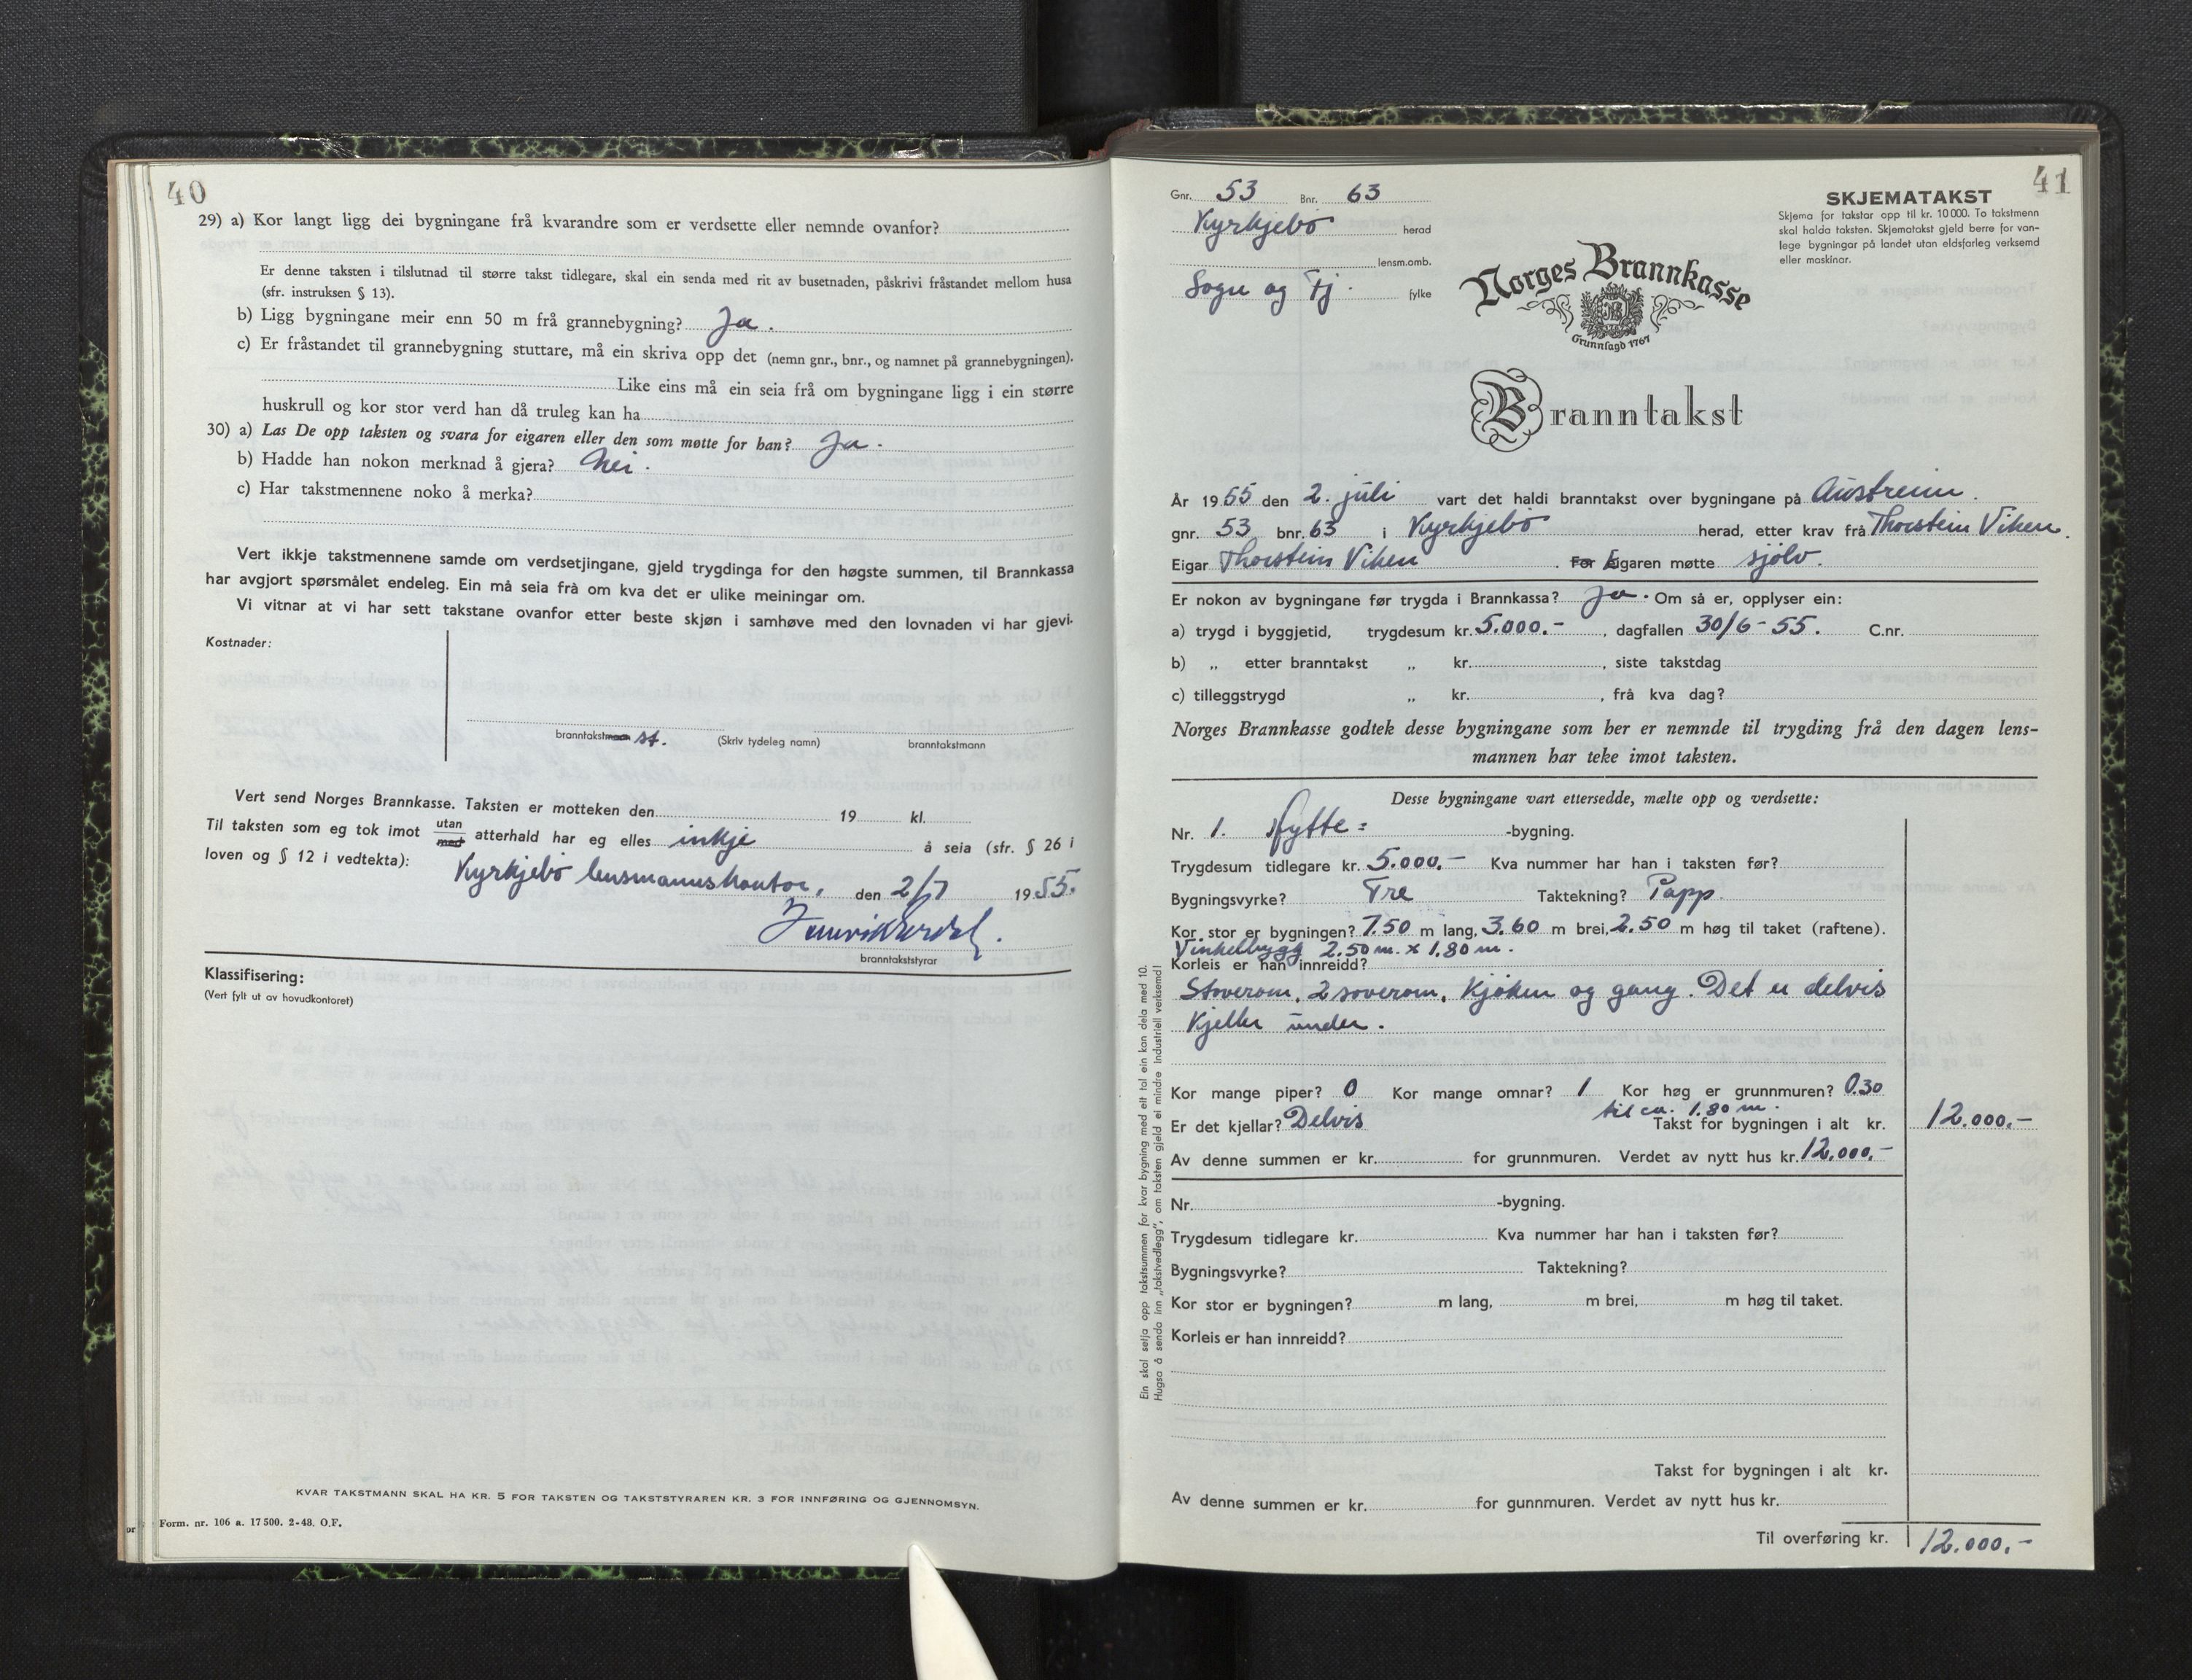 40
29) a) Kor langt ligg dei bygningane frå kvarandre som er verdsette eller nemnde ovanfor?
Er denne taksten i tilslutnad til større takst tidlegare, skal ein senda med rit av busetnaden, påskrivi fråstandet mellom husa
(sfr. instruksen § 13).
b) Ligg bygningane meir enn 50 m frå grannebygning? Ja.
c) Er fråstandet til grannebygning stuttare, må ein skriva opp det (nemn gnr., bnr., og namnet på grannebygningen).
Like eins må ein seia frå om bygningane ligg i ein større
huskrull og kor stor verd han då truleg kan ha
30) a) Las De opp taksten og svara for eigaren eller den som møtte for han? Ja.
b) Hadde han nokon merknad å gjera? Nei.
c) Har takstmennene noko å merka?
Vert ikkje takstmennene samde om verdsetjingane, gjeld trygdinga for den høgste summen, til Brannkassa
har avgjort spørsmålet endeleg. Ein må seia frå om kva det er ulike meiningar om.
Vi vitnar at vi har sett takstane ovanfor etter beste skjøn i samhøve med den lovnaden vi har gjevi.
Kostnader:
branntakstmann st. (Skriv tydeleg namn) branntakstmann
Vert send Norges Brannkasse. Taksten er motteken den 19 kl.
Til taksten som eg tok imot utan med atterhald har eg elles inkje å seia (sfr. § 26 i
loven og § 12 i vedtekta): Kyrkjebö lensmannskontor, den 2/7 1955.
branntakststyrar
Klassifisering:
(Vert fylt ut av hovudkontoret)
KVAR TAKSTMANN SKAL HA KR. 5 FOR TAKSTEN OG TAKSTSTYRAREN KR. 3 FOR INNFØRING OG GJENNOMSYN.
Form. nr. 106 a. 17500. 2-48. O.F.
41
Gnr. 53 Bnr. 63
Kyrkjebö herad
lensm.omb.
Sogn og Fj. fylke
SKJEMATAKST
Skjema for takstar opp til kr. 10000. To takstmenn
skal halda taksten. Skjematakst gjeld berre for van-
lege bygningar på landet utan eldsfarleg verksemd
eller maskinar.
Norges Brannkasse
Grunnlagd 1767
Branntakst
År 1955 den 2. juli vart det haldi branntakst over bygningane på Austreim.
gnr. 53 bnr. 63 i Kyrkjebö herad, etter krav frå Thorstein Viken.
Eigar Thorstein Viken. For Eigaren møtte sjölv.
Er nokon av bygningane før trygda i Brannkassa? Ja. Om så er, opplyser ein:
a) trygd i byggjetid, trygdesum kr. 5.000.-, dagfallen 30/6-55. C.nr.
b) „ etter branntakst „ kr. , siste takstdag
c) tilleggstrygd „ kr. , frå kva dag?
Norges Brannkasse godtek desse bygningane som her er nemnde til trygding frå den dagen lens-
mannen har teke imot taksten.
Desse bygningane vart ettersedde, mælte opp og verdsette:
Nr. 1. Hytte= -bygning.
Trygdesum tidlegare kr. 5.000.- Kva nummer har han i taksten før?
Bygningsvyrke? Tre Taktekning? Papp.
Kor stor er bygningen? 7.50 m lang, 3.60 m brei, 2.50 m høg til taket (raftene).
Vinkelbygg 2.50 m. x 1.80 m.
Korleis er han innreidd?
Stoverom, 2 soverom, kjöken og gang. Det er delvis
kjeller under.
Kor mange piper? 0 Kor mange omnar? 1 Kor høg er grunnmuren? 0.30
til ca. 1.80 m.
Er det kjellar? Delvis Takst for bygningen i alt kr. 12.000.-
Av denne summen er kr. for grunnmuren. Verdet av nytt hus kr. 12.000.-
Nr. -bygning.
Trygdesum tidlegare kr. Kva nummer har han i taksten før?
Bygningsvyrke? Taktekning?
Kor stor er bygningen? m lang, m brei, m høg til taket.
Korleis er han innreidd?
Takst for bygningen i alt kr.
Av denne summen er kr. for gunnmuren. Verdet av nytt hus kr.
Til overføring kr. 12.000.-
Ein skal setja opp takstsummen for kvar bygning med eit tal ein kan dela med 10.
Hugsa å senda inn „takstvedlegg", om taksten gjeld ei mindre industriell verksemd!